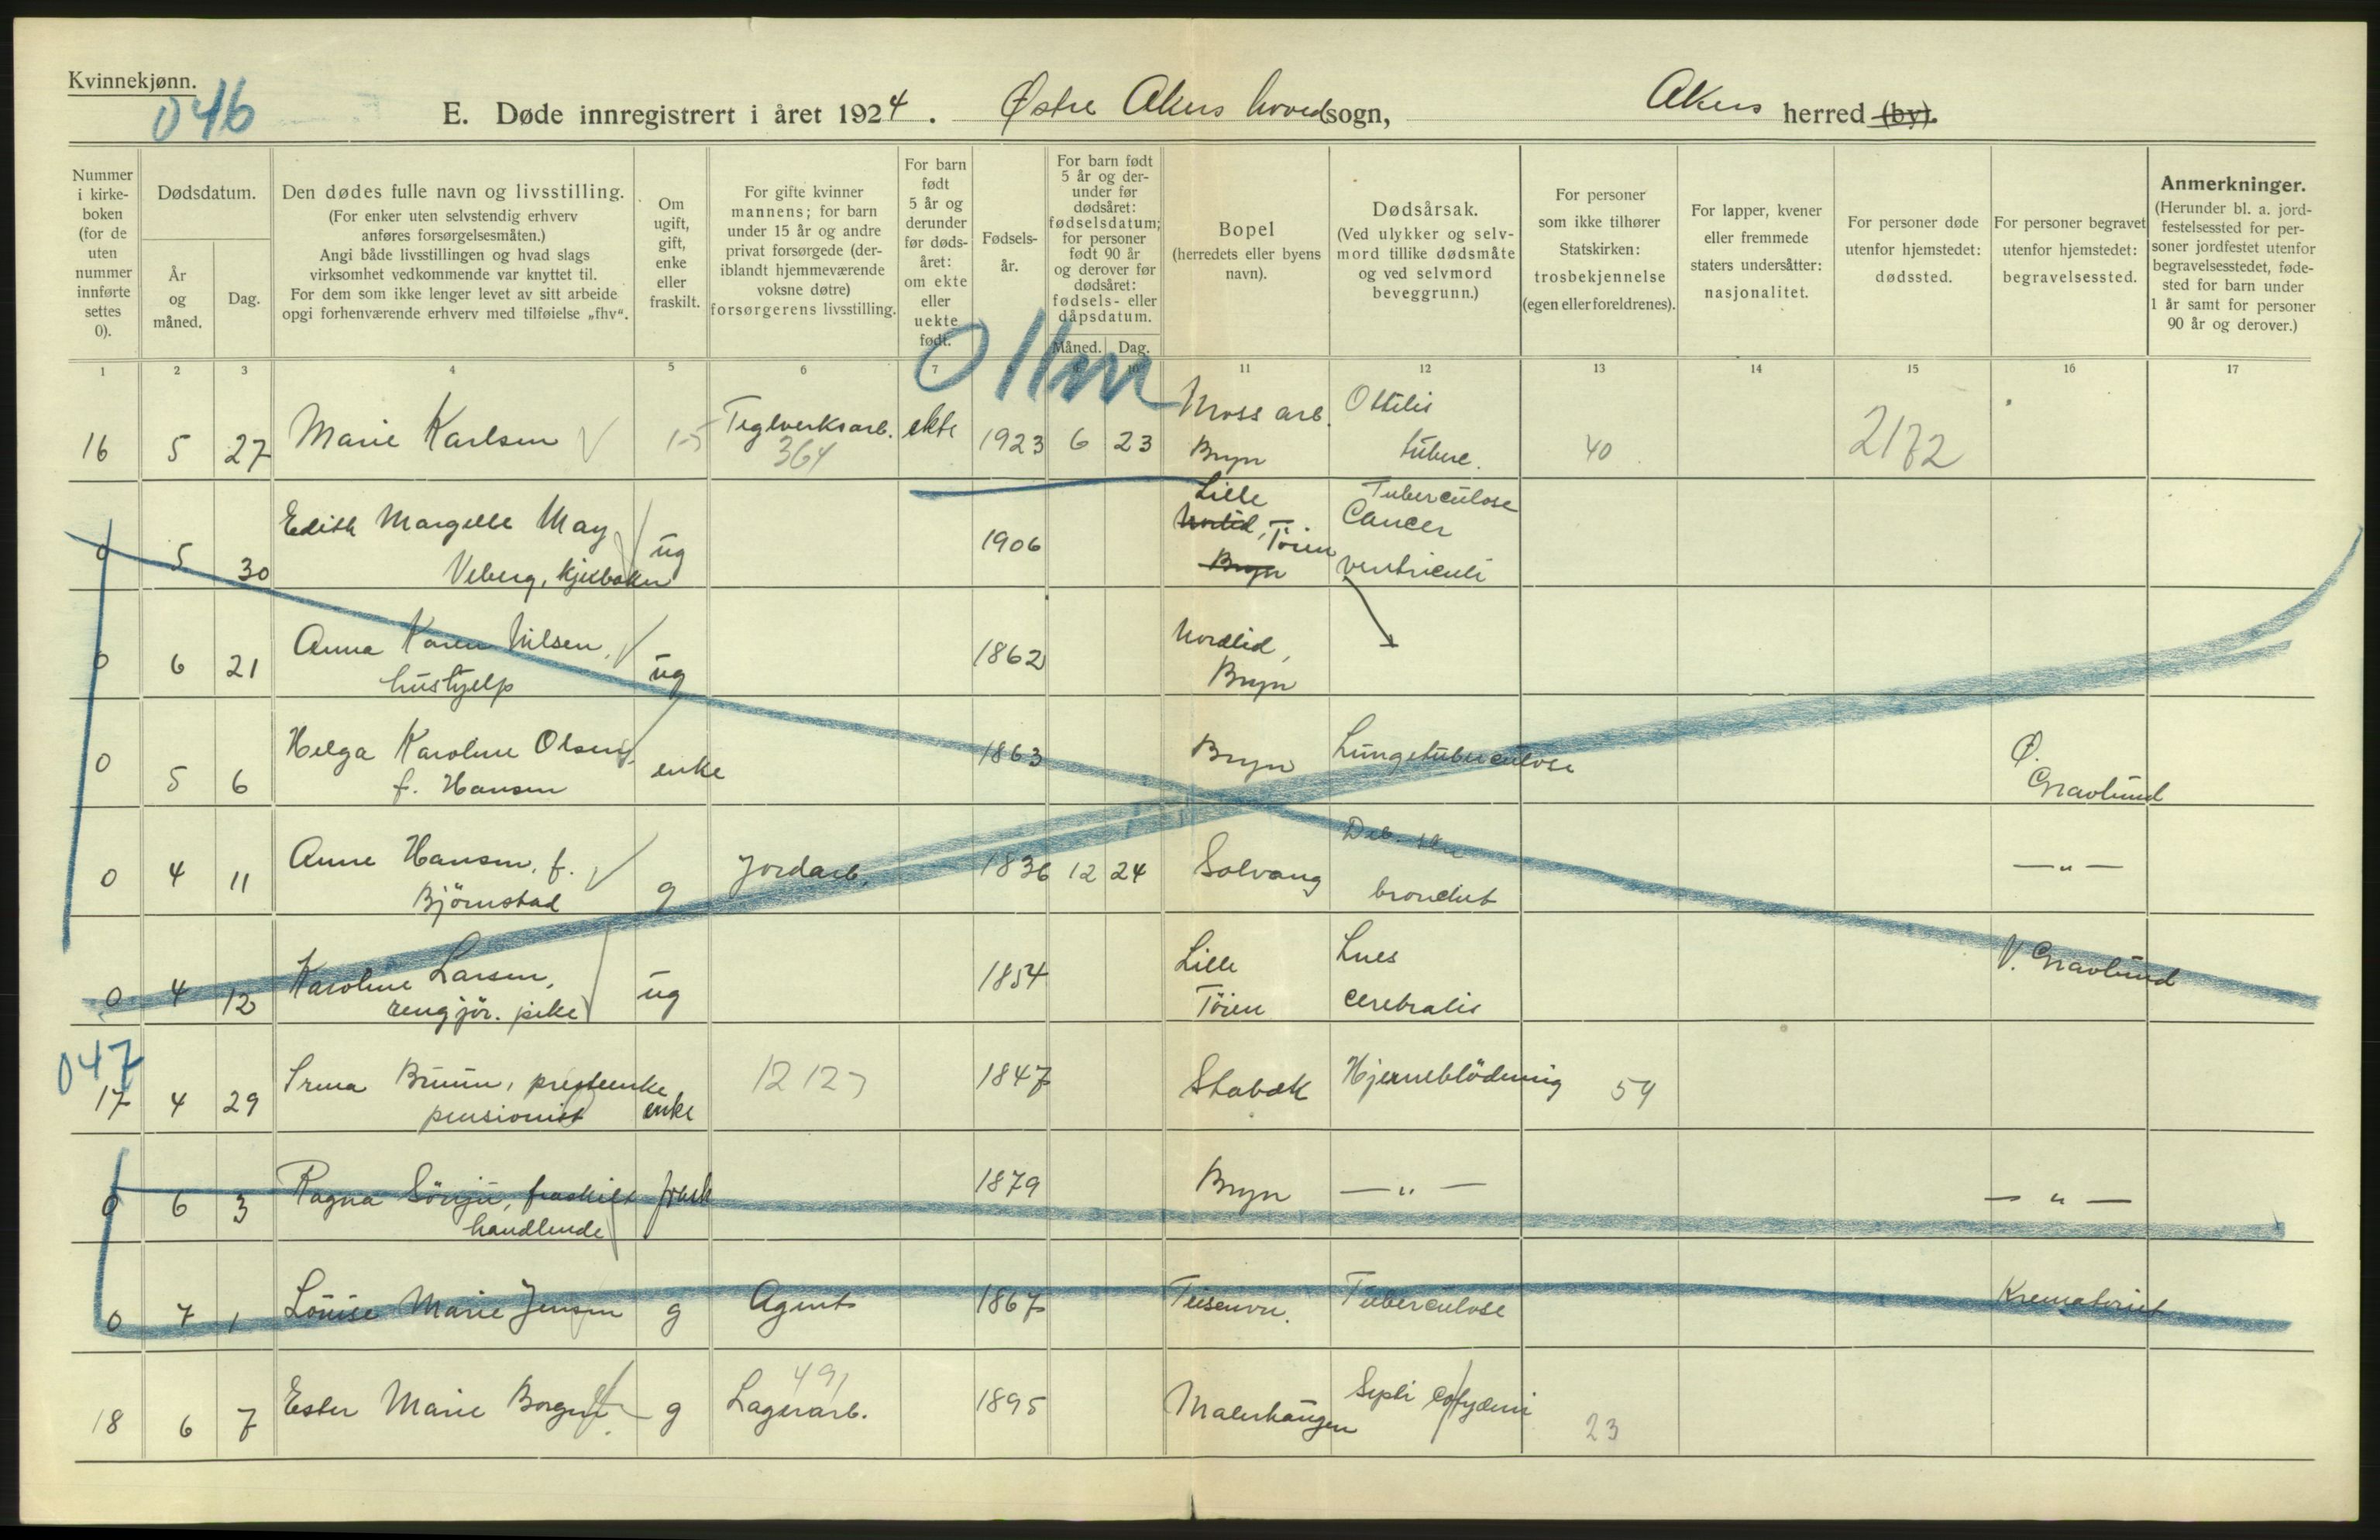 Kvinnekjønn.
046
E. Døde innregistrert i året 1924. Østre Akers hovedsogn, Akers herred (by).
Nummer i kirkeboken (for de uten nummer innførte settes 0).
Dødsdatum.
År og måned.
Dag.
Den dødes fulle navn og livsstilling.
(For enker uten selvstendig erhverv anføres forsørgelsesmåten.)
Angi både livsstillingen og hvad slags virksomhet vedkommende var knyttet til.
For dem som ikke lenger levet av sitt arbeide opgi forhenværende erhverv med tilføielse „fhv“.
Om ugift, gift, enke eller fraskilt.
For gifte kvinner mannens; for barn under 15 år og andre privat forsørgede (deriblandt hjemmeværende voksne døtre) forsørgerens livsstilling.
For barn født 5 år og derunder før dødsåret: om ekte eller uekte født.
Fødselsår.
For barn født 5 år og derunder før dødsåret: fødselsdatum; for personer født 90 år og derover før dødsåret: fødsels- eller dåpsdatum.
Måned. Dag.
Bopel
(herredets eller byens navn).
Dødsårsak.
(Ved ulykker og selvmord tillike dødsmåte og ved selvmord beveggrunn.)
For personer som ikke tilhører Statskirken: trosbekjennelse (egen eller foreldrenes).
For lapper, kvener eller fremmede staters undersåtter: nasjonalitet.
For personer døde utenfor hjemstedet: dødssted.
For personer begravet utenfor hjemstedet: begravelsessted.
Anmerkninger.
(Herunder bl. a. jordfestelsessted for personer jordfestet utenfor begravelsesstedet, fødested for barn under 1 år samt for personer 90 år og derover.)
1 2 3 4 5 6 7 10 11 12 13 14 15 16 17
16 5 27 Marie Karlsen Teglverksarb. 364 ekte 1923 6 23 Moss arb. Bryn Ottitis tuberc. 40 2172
0 5 30 Edith Margelle May Veberg, kjeksbaker ug 1906 Lille Tøien Bryn Tuberculose Cancer ventriculi
0 6 21 Anna Karen Nilsen, hushjelp ug 1862 Nordlid, Bryn
0 5 6 Helga Karoline Olsen, f. Hansen enke 1863 Bryn Lungetuberculose Ø. Gravlund
0 4 11 Anne Hansen, f. Björnstad g Jordarb. 1836 12 24 Solvang Deb. bronchit — " —
0 4 12 Karoline Larsen, rengjör. pike ug 1854 Lille Töien Lues cerebralis V. Gravlund
047
17 4 29 Irma Bruun, presteenke pensionist enke 1212 1847 Stabæk Hjerneblödning 54
0 6 3 Ragna Sönju, fraskilt handlende frask 1879 Bryn — " — — " —
0 7 1 Louise Marie Jensen g Agent 1867 Teisenvn. Tuberculose Krematoriet
18 6 7 Ester Marie Borgen g Lagerarb. 491 1895 Malerhaugen 23